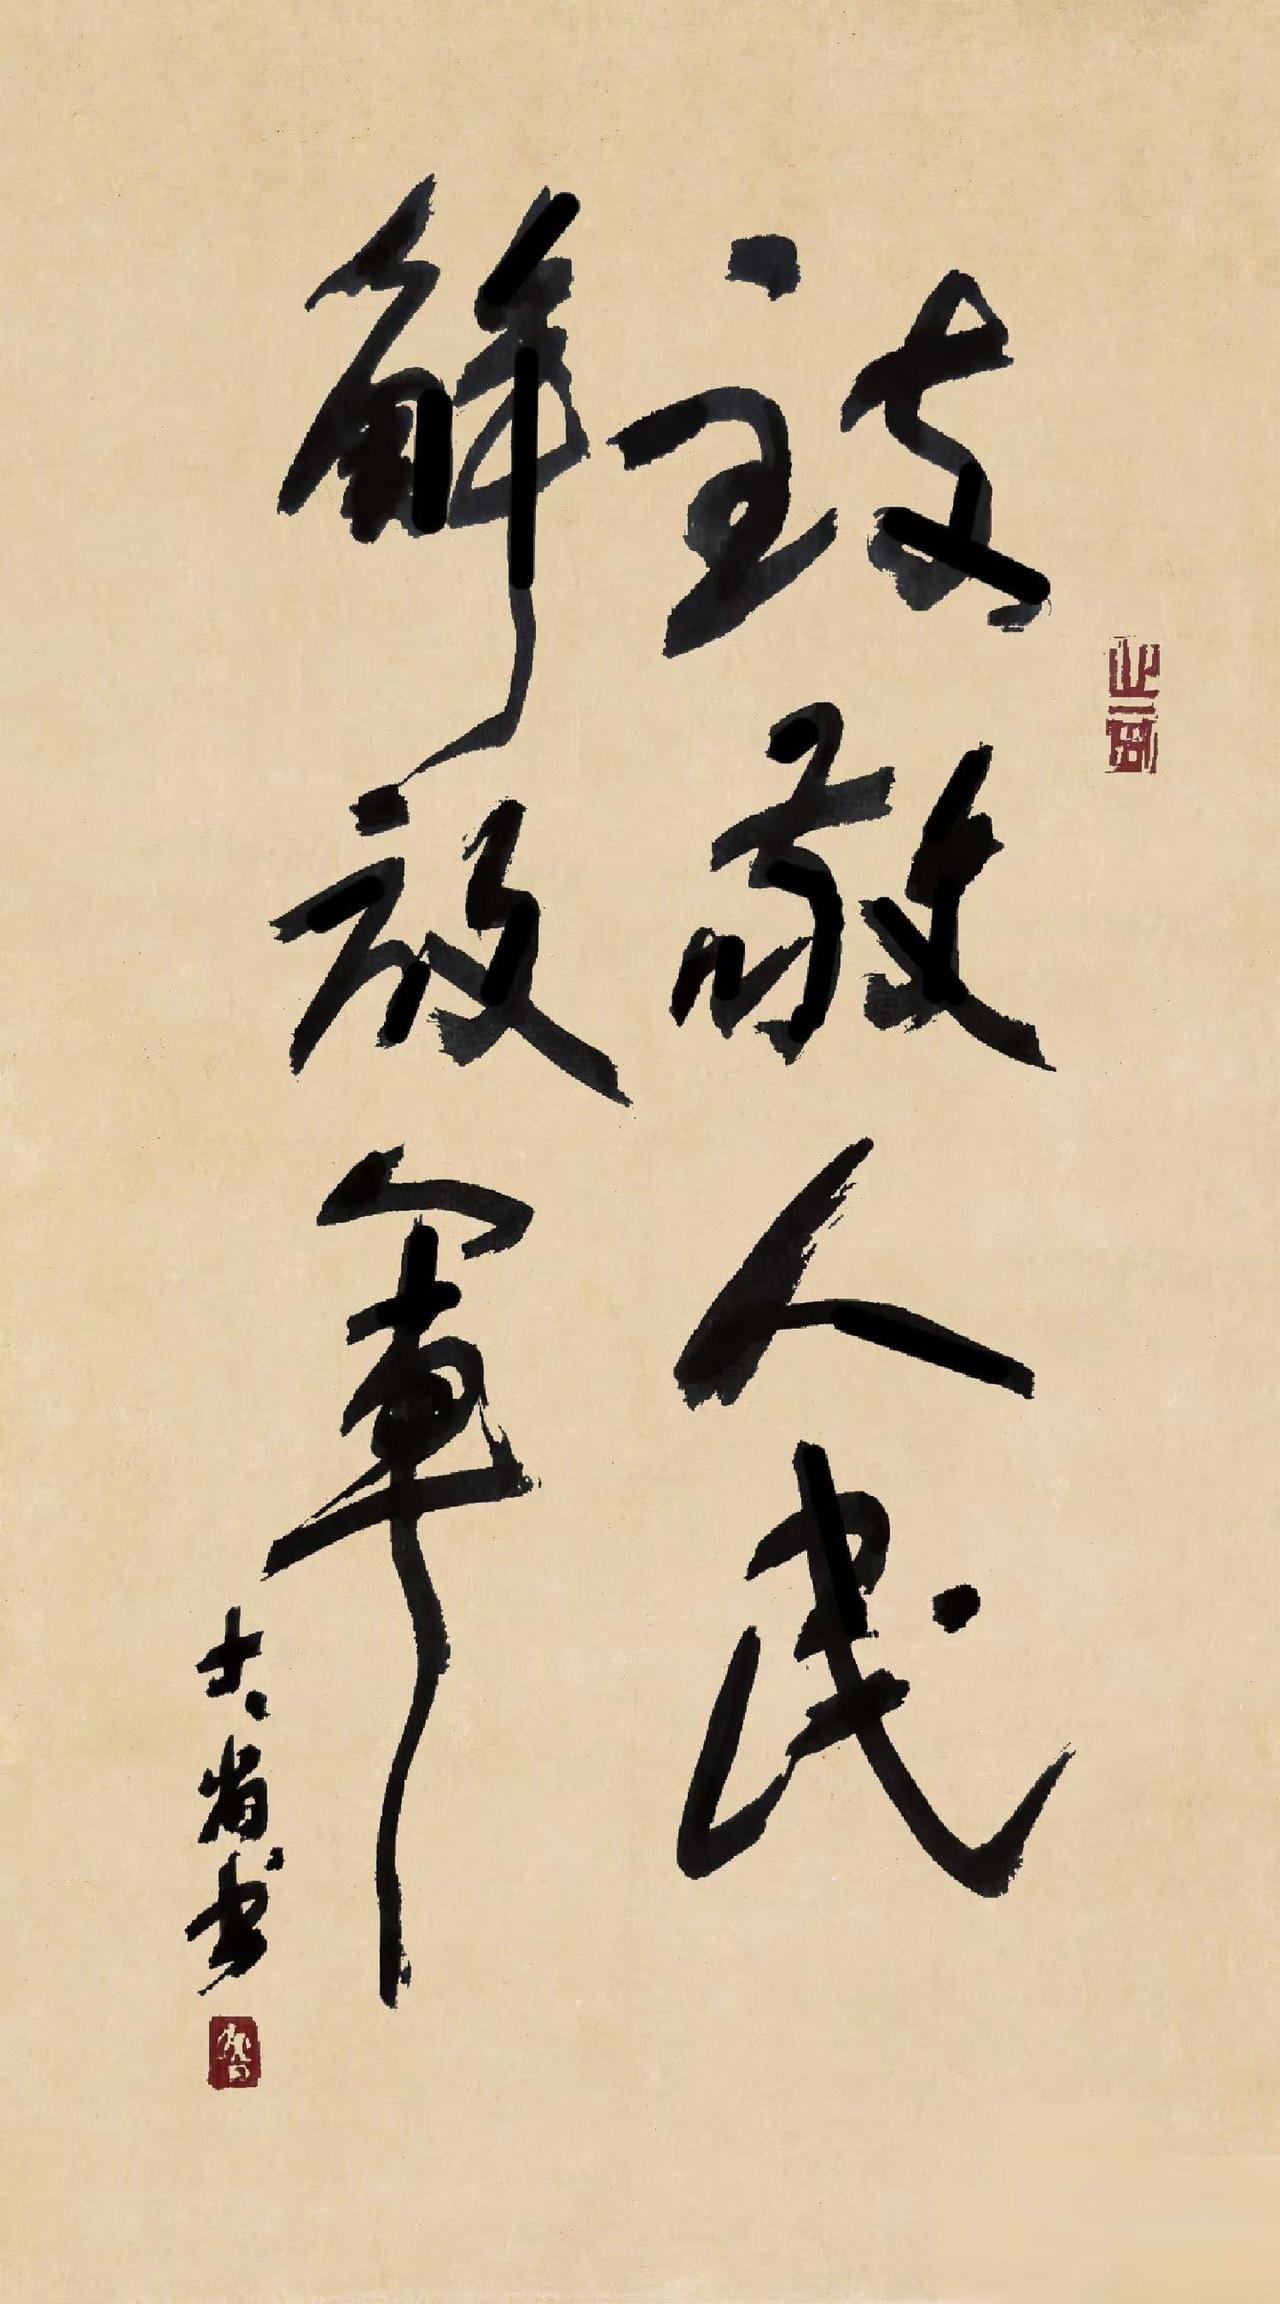 致敬人民
解放军
大省书